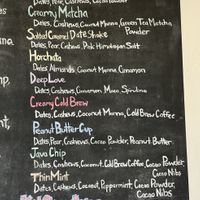 Dates, Pear, Cashews, Cacao Powder
Creamy Matcha
Dates, Cashews, Coconut Manna, Green Tea Matcha
Powder
Salted Caramel Date Shake
Dates, Pear, Cashews, Pink Himalayan Salt
Horchata
Dates, Almonds, Coconut Manna, Cinnamon
Deep Love
Dates, Cashews, Cinnamon, Maca, Spirulina
Creamy Cold Brew
Dates, Cashews, Coconut Manna, Cold Brew Coffee
Peanut Butter Cup
Dates, Pear, Cashews, Cacao Powder, Peanut Butter
Java Chip
Dates, Cashews, Coconut, Cold Brew Coffee, Cacao Powder,
Cacao Nibs
Thin Mint
Dates, Cashews, Coconut, Peppermint, Cacao Powder,
Cacao Nibs